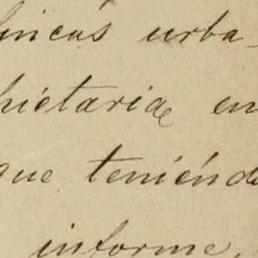 fincas urba-
hietariae en
que teniénd
informe,